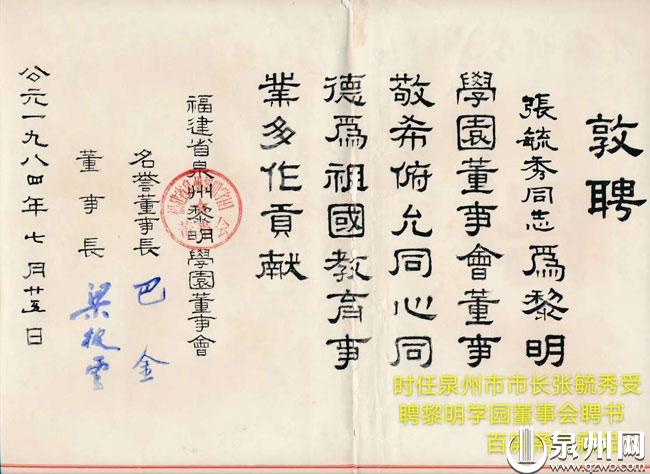 敦聘
張毓秀同志爲黎明
學園董事會董事
敬希俯允同心同
德爲祖國教育事
業多作貢献
福建省泉州黎明學園董事會
名誉董事長 巴金
董事長 梁披雲
公元一九八四年七月廿五日
时任泉州市市长张毓秀受
聘黎明学园董事会聘书
泉州网
www.qzwb.com